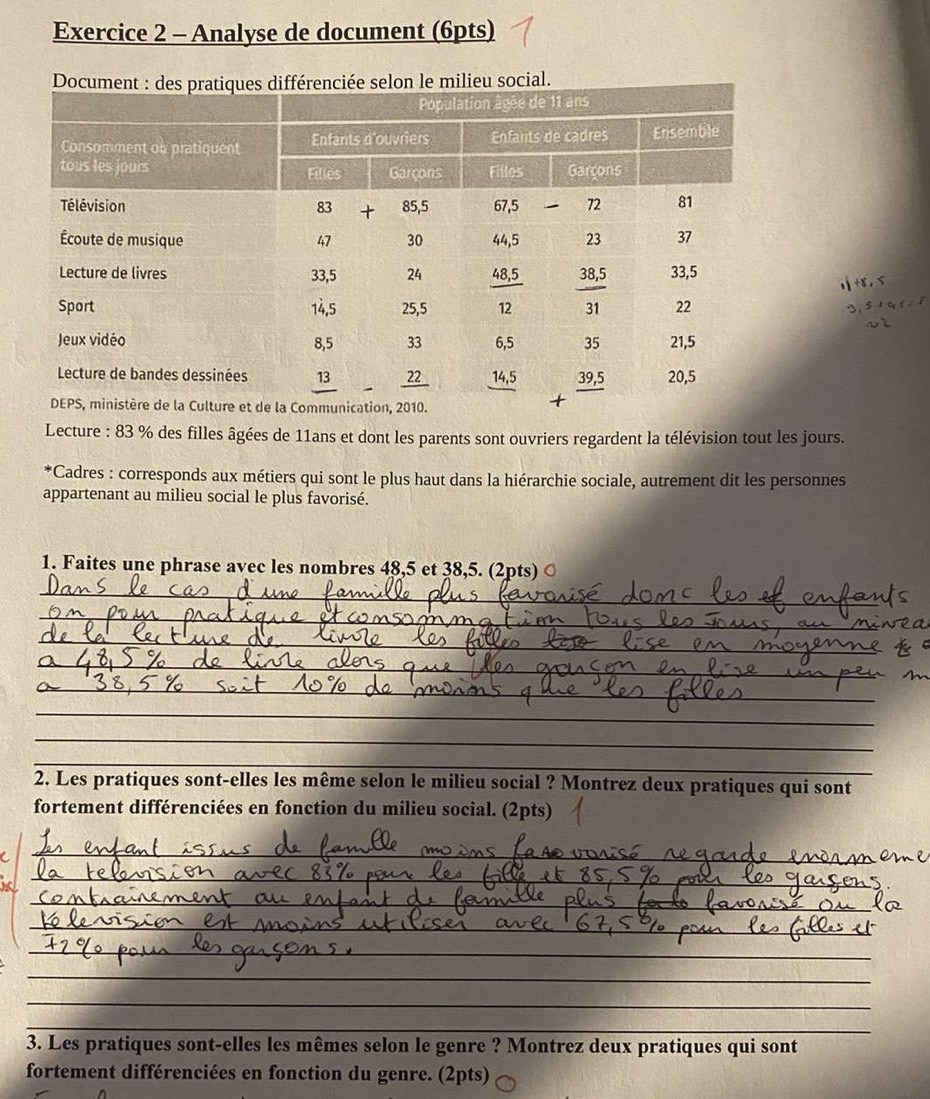 Exercice 2 – Analyse de document (6pts) 1
Document : des pratiques différenciée selon le milieu social.
Population âgée de 11 ans
Consomment ou pratiquent tous les jours Enfants d'ouvriers Enfants de cadres Ensemble
Filles Garçons Filles Garçons
Télévision 83 + 85,5 67,5 – 72 81
Écoute de musique 47 30 44,5 23 37
Lecture de livres 33,5 24 48,5 38,5 33,5
Sport 14,5 25,5 12 31 22
Jeux vidéo 8,5 33 6,5 35 21,5
Lecture de bandes dessinées 13 – 22 14,5 + 39,5 20,5
DEPS, ministère de la Culture et de la Communication, 2010.
Lecture : 83 % des filles âgées de 11ans et dont les parents sont ouvriers regardent la télévision tout les jours.
*Cadres : corresponds aux métiers qui sont le plus haut dans la hiérarchie sociale, autrement dit les personnes
appartenant au milieu social le plus favorisé.
1. Faites une phrase avec les nombres 48,5 et 38,5. (2pts) 0
Dans le cas d'une famille plus favorisé donc les enfants
on pour pratique et consommation tous les jours, au nivea
de la lecture de livre les filles lise en moyenne
a 48,5% de livre alors que les garçon en lise un peu m
a 38,5% soit 10% de moins que les filles
2. Les pratiques sont-elles les même selon le milieu social ? Montrez deux pratiques qui sont
fortement différenciées en fonction du milieu social. (2pts) 1
Les enfant issus de famille moins favorisé regarde enormeme
la television avec 83% pour les fille et 85,5% pour les garçons.
contrairement au enfant de famille plus favorisé ou la
télevision est moins utiliser avec 67,5% pour les filles et
72% pour les garçons.
3. Les pratiques sont-elles les mêmes selon le genre ? Montrez deux pratiques qui sont
fortement différenciées en fonction du genre. (2pts) 0